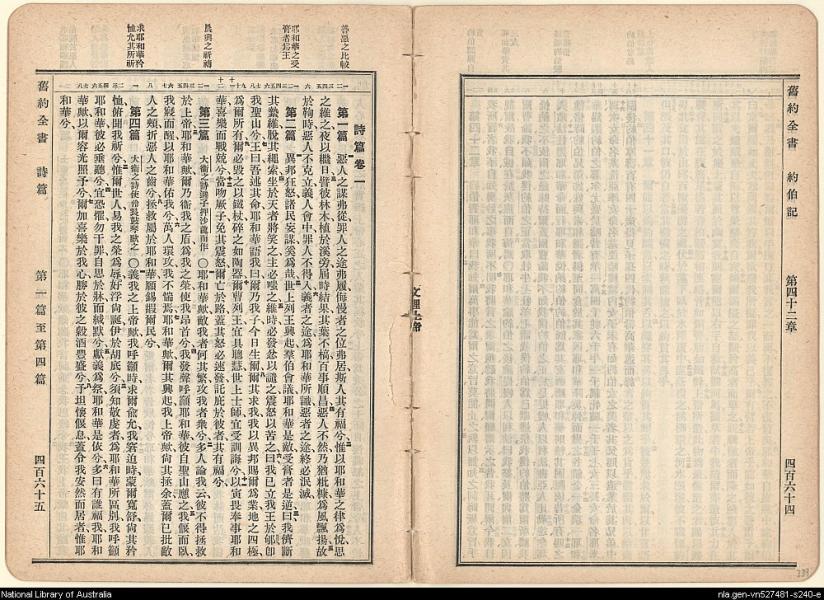 舊約全書 約伯記 第四十二章 四百六十四
善惡之比較
耶和華之受膏者爲王
晨興之祈禱
求耶和華矜恤允其所祈
詩篇卷一
第一篇 惡人之謀弗從罪人之途弗履侮慢者之位弗居斯人其有福兮惟以耶和華之律爲悅思
之維之夜以繼日兮譬彼林木植於溪旁屆時結果其葉不槁百事順昌惡人不然乃猶粃糠爲風飄揚故
於鞫時惡人不克立義人會中罪人不得入義者之途爲耶和華所識惡者之途終必泯滅
第二篇 異邦狂怒諸民妄謀奚爲哉世上列王興起羣伯會議耶和華是敵受膏者是逆曰我儕斷
其縶維脫其繩索坐於天者將笑之主必嗤之維時必發忿以譴之震怒以苦之曰我已立我王於郇卽
我聖山兮王曰吾述其命耶和華語我曰爾乃我子今日生爾爾其求我我以異邦賜爾爲業地之四極
爲爾所有爾必毀之以鐵杖碎之如陶器爾曹列王宜具聰慧世上士師宜受訓誨兮以寅畏奉事耶和
華喜樂而戰兢兮當吻厥子免其震怒爾亡於路蓋其怒必速發託庇於彼者其有福兮
第三篇 大衛之詩避子押沙龍而作 ○耶和華歟敵我者何其繁攻我者衆兮多人論我云彼不得拯救
於上帝耶和華歟爾乃衞我之盾爲我之榮使我昂首兮我發聲呼籲耶和華彼自聖山應之我偃而臥
我寢而醒以耶和華佑我兮萬人環攻我不惴焉耶和華歟爾其興起我上帝歟尙其拯余蓋爾已批敵
人之頰折惡人之齒兮拯救屬於耶和華願錫嘏爾民兮
第四篇 大衛之詩使伶長鼓琴歌之 ○義我之上帝歟我呼籲時求爾兪允我窘迫時蒙爾寬舒尙其矜
恤俯聞我祈兮惟爾世人易我之榮爲辱好浮尙誕伊於胡底兮須知敬虔者爲耶和華所區別我呼籲
耶和華彼必垂聽兮宜恐懼勿干罪自思於牀而緘默兮獻義爲祭耶和華是依兮多曰有誰福我耶和
華歟以爾容光照予兮爾加喜樂於我心勝於彼之穀酒豐盛兮予坦懷偃息蓋令我安然而居者惟耶
和華兮
舊約全書 詩篇 第一篇至第四篇 四百六十五
National Library of Australia
nla.gen-vn527481-s240-e